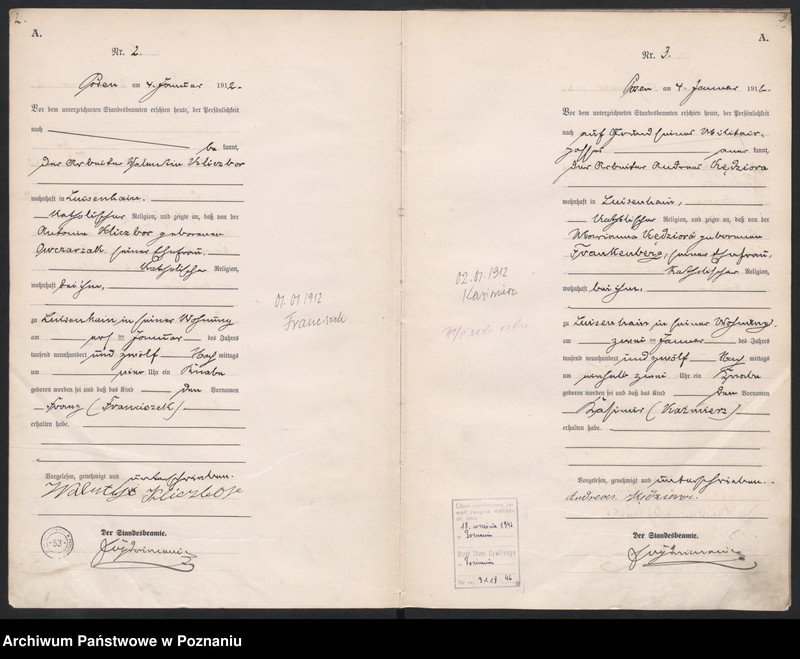 2.
A.
Nr. 2.
Posen am 4. Januar 1912.
Vor dem unterzeichneten Standesbeamten erschien heute, der Persönlichkeit
nach
be kannt,
der Arbeiter Valentin Kliczbor
wohnhaft in Luisenhain.
Katholischer Religion, und zeigte an, daß von der
Antonia Kliczbor geborenen
Owczarzak, seiner Ehefrau,
Katholischer Religion,
wohnhaft bei ihm,
zu Luisenhain in seiner Wohnung
am ersten Januar des Jahres
tausend neunhundert und zwölf Nach mittags
um vier Uhr ein Knabe
geboren worden sei und daß das Kind den Vornamen
Franz (Franciszek)
erhalten habe.
Vorgelesen, genehmigt und unterschrieben.
Kliczbor
Der Standesbeamte.
53
01.01 1912
Franciszek
3
A.
Nr. 3.
Posen am 4. Januar 1912.
Vor dem unterzeichneten Standesbeamten erschien heute, der Persönlichkeit
nach auf Grund seines Militair-
passes aner kannt,
der Arbeiter Andreas Kędziora
wohnhaft in Luisenhain,
Katholischer Religion, und zeigte an, daß von der
Marianna Kędziora geborenen
Frankenberg, seiner Ehefrau,
Katholischer Religion,
wohnhaft bei ihm,
zu Luisenhain in seiner Wohnung,
am zweiten Januar des Jahres
tausend neunhundert und zwölf Nach mittags
um einhalb zwei Uhr ein Knabe
geboren worden sei und daß das Kind den Vornamen
Kasimir (Kaźmierz)
erhalten habe.
Vorgelesen, genehmigt und unterschrieben.
Andreas Kędziora.
Der Standesbeamte.
02.01.1912
Kazimierz
18. września 1946
w Poznaniu
Urząd Stanu Cywilnego
w Poznaniu
Nr 3118 46
Archiwum Państwowe w Poznaniu